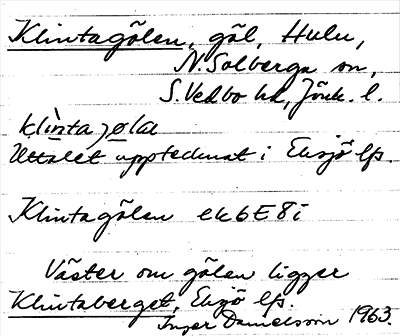 Klintagölen, göl, Hulu,
N. Solberga sn,
S. Vedbo hd, Jönk. l.
klìnta jøla
Uttalet upptecknat i Eksjö lfs.
Klintagölen ek6E8i
Väster om gölen ligger
Klintaberget, Eksjö lfs.
Inger Danielsson 1963.